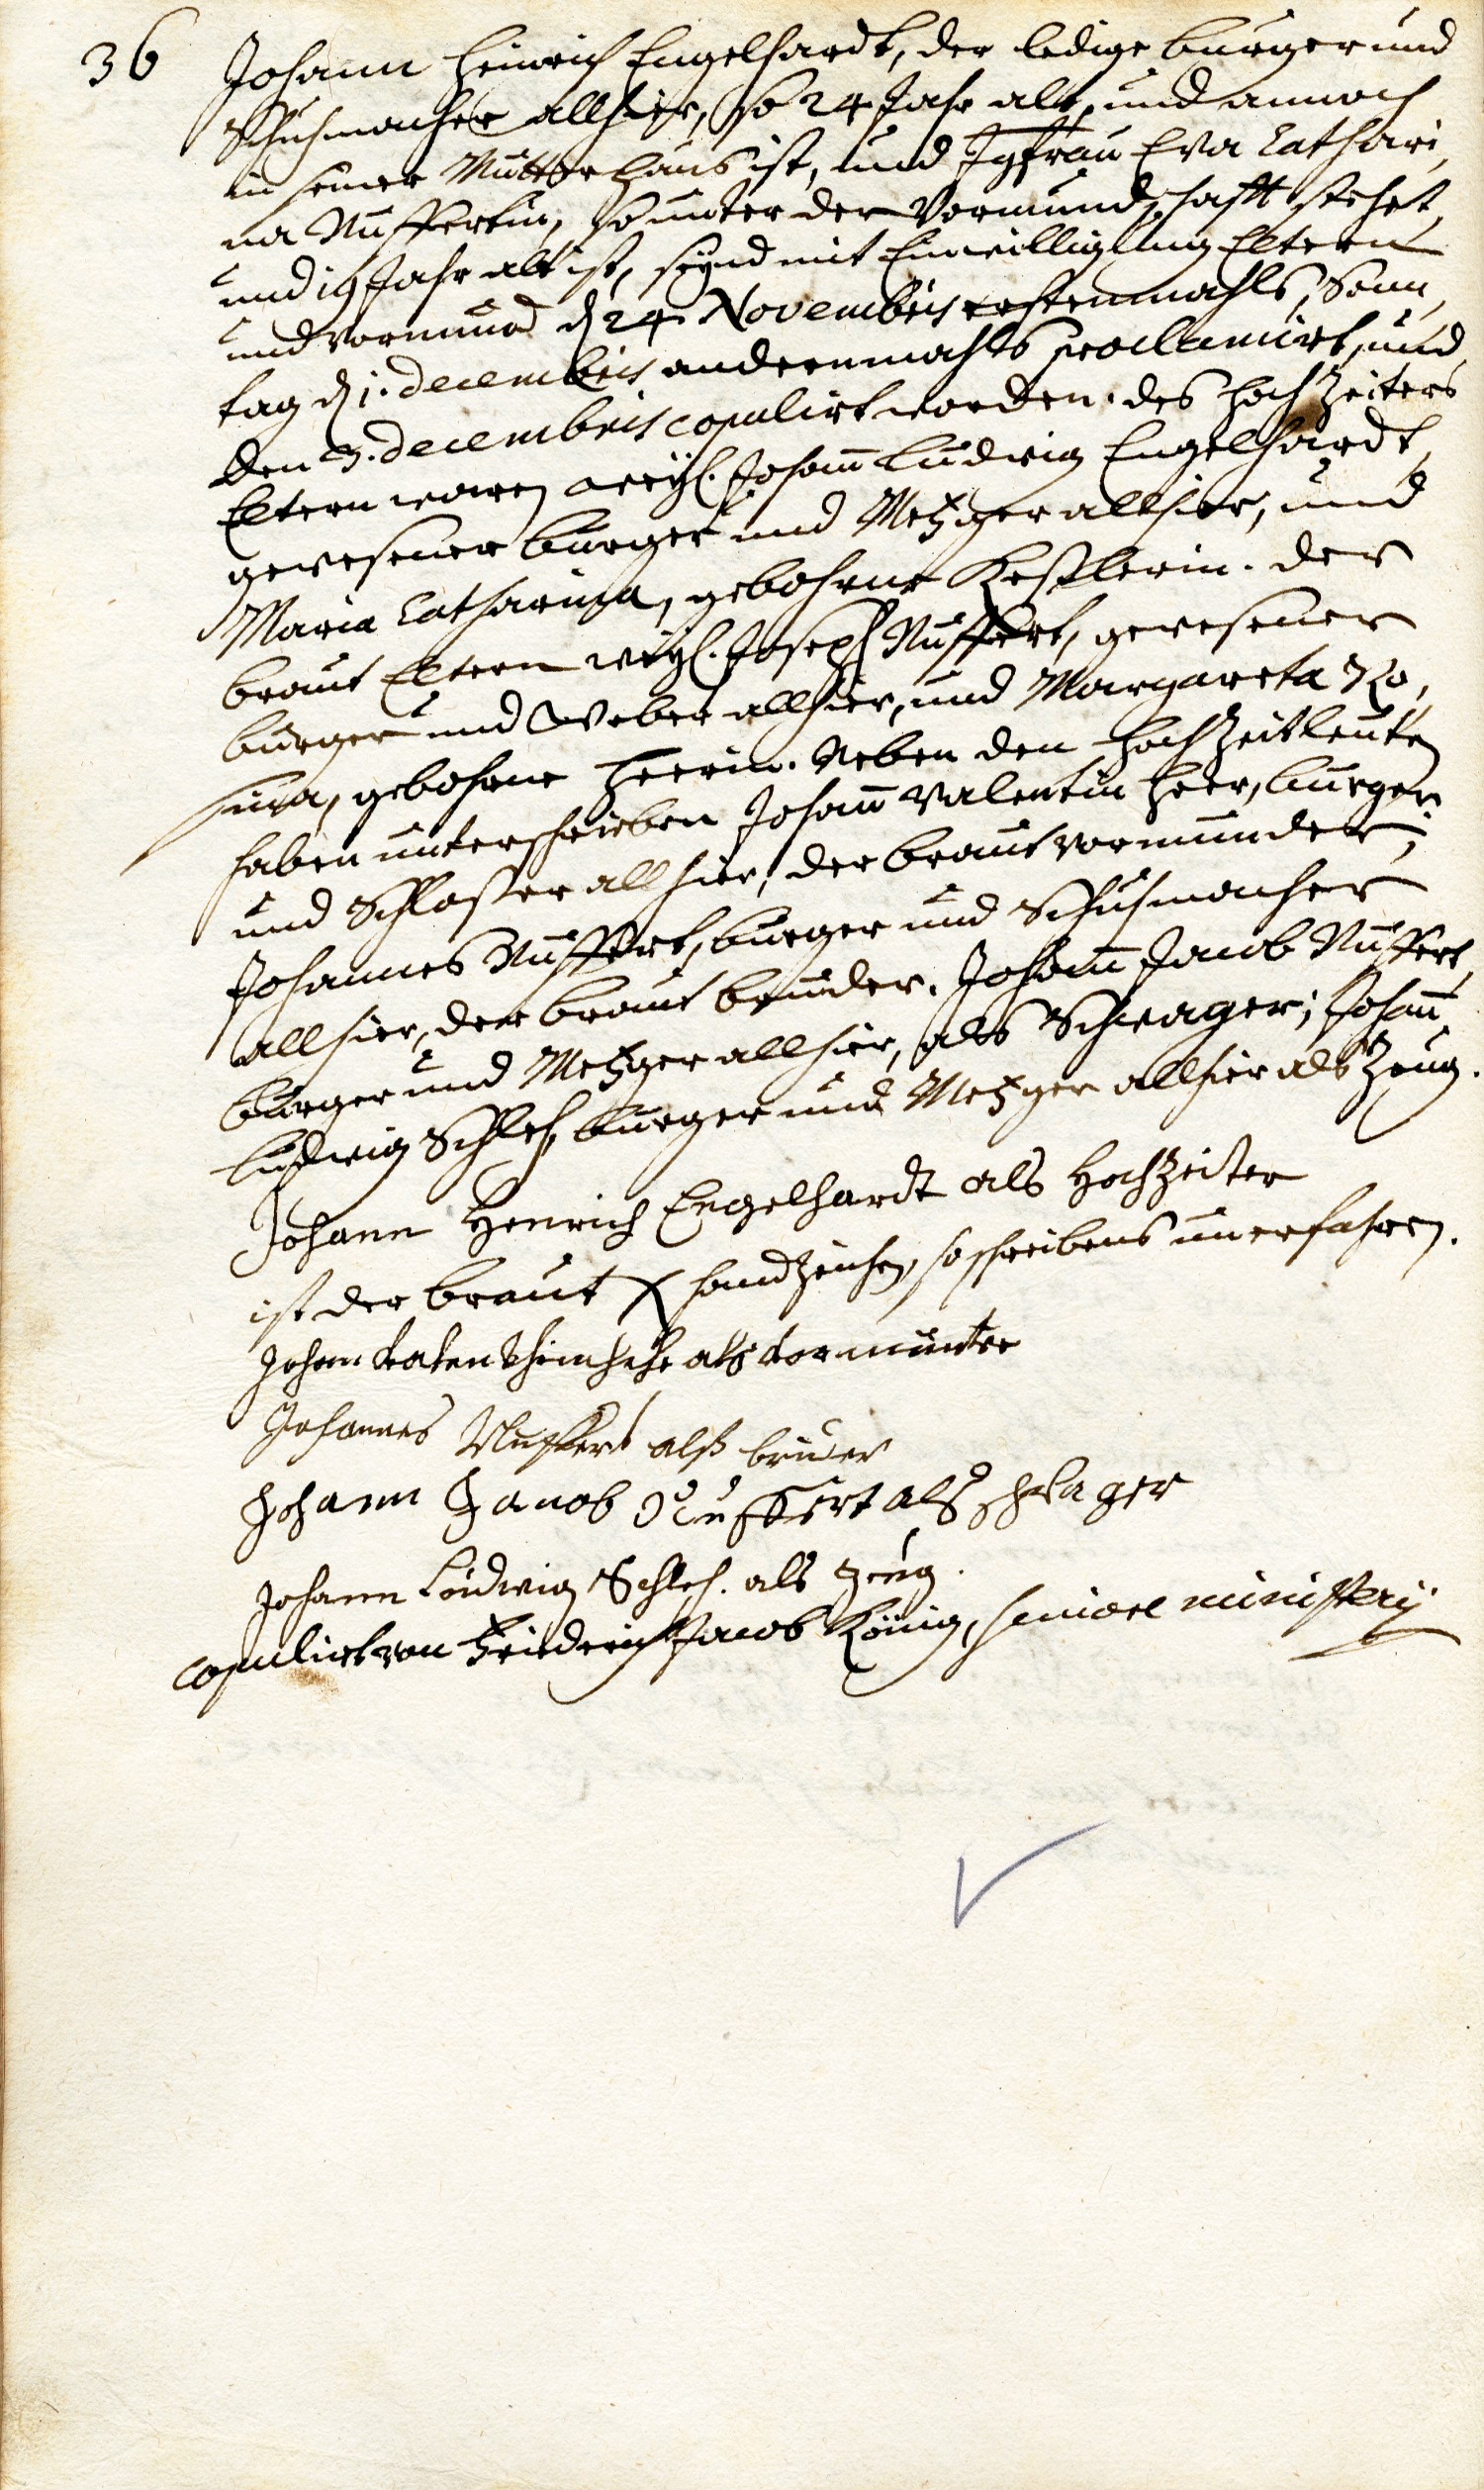 36
Johann Heinrich Engelhardt, der ledige burger und
Schuhmacher allhier, so 24 Jahr alt, und annoch
in seiner Mutter Hauß ist, und Jgfrau Eva Cathari,
na Nuffertin, so unter der Vormundschafft stehet,
und 19 Jahr alt ist, seynd mit Einwilligung Eltern
und Vormund d 24 Novembris erstenmahls, Sonn,
tag d 1. decembris andernmahls proclamirt, und
den 3. decembris copulirt worden. des Hochzeiters
Eltern waren weyl. Johann Ludwig Engelhardt,
gewesener burger und Metzger allhier, und
Maria Catharina, gebohrne Keßlerin. der
braut Eltern weyl. Joseph Nuffert, gewesener
burger und Weber allhier, und Margareta Ro,
sina, gebohrne Heerin. Neben den Hochzeitleuten
haben unterschrieben Johann Valentin Heer, burger
und Schlosser allhier, der braut Vormunder;
Johannes Nuffert, burger und Schuhmacher
allhier, der braut bruder. Johann Jacob Nuffert,
burger und Metzger allhier, als Schwager; Johann
Ludwig Schleh, burger und Metzger allhier als Zeug.
Johann Henrich Engelhardt als Hochzeiter
ist der braut X handzeichen, so schreibens unerfahren.
als vormunter
Johannes Nuffert alß bruder
Johann Jacob Nuffert als schwager
Johann Ludwig Schleh. als Zeug.
copulirt von Friderich Jacob König, seniore ministerij